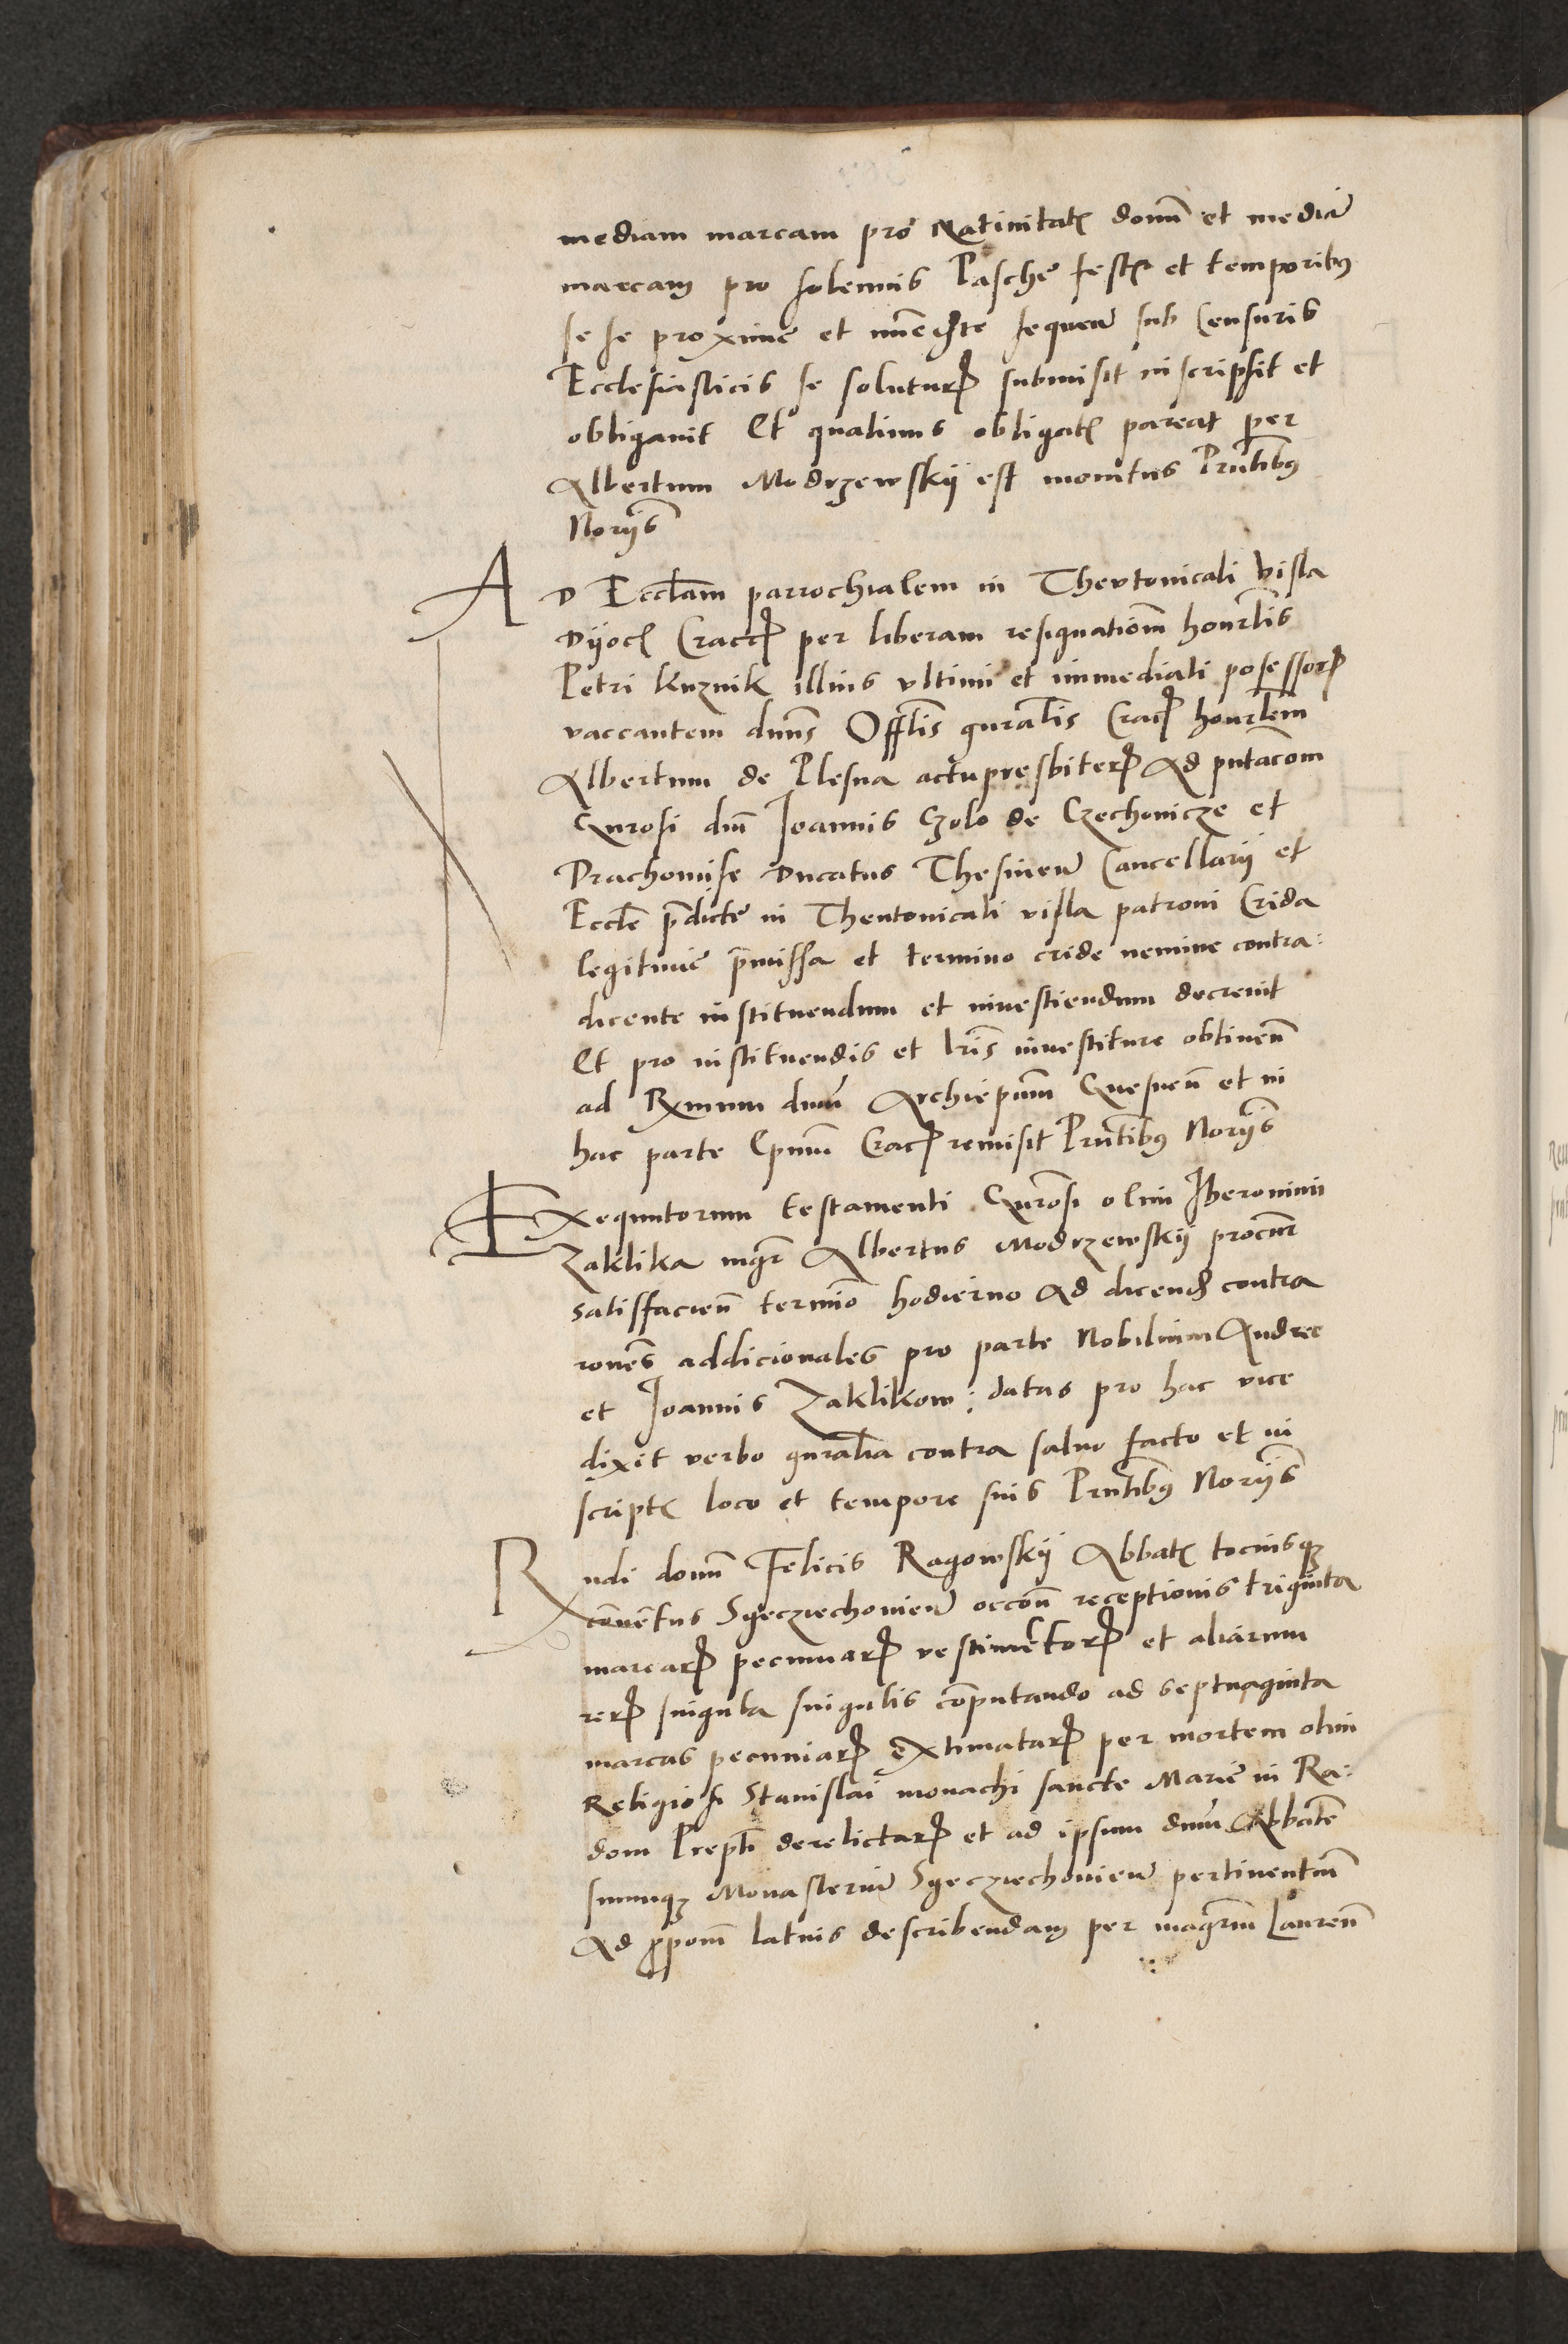 mediam marcam pro Natiuitatis domi et mediam
marcam pro solennis Pasche festis et temporibus
se se proxime et immediate sequen sub Censuris
Ecclesiasticis se soluturum submisit inscripsit et
obligauit Et quatinus obligatis pareat per
Albertum Modrzewskij est monitus Pntibus
Norijs
AD Eccliam parrochialem in Thewtonicali villa
Dijoc Craccz per liberam resignationem honrlis
Petri Kuznik illius vltimi et immediati posessorz
vaccantem dnus Offlis gnralis Crac honrlem
Albertum de Plesna actu presbiterz Ad pntacom
Gnrosi dni Joannis Czolo de Czechonicze et
Prachomise Ducatus Thesinen Cancellarij et
Eccle predicte in Thentonicali villa patroni Crida
legitime premissa et termino cride nemine contra:
dicente instituendum et inuestiendum decreuit
Et pro instituendis et lris inuestiture obtinen
ad Rxmum dnum Archiepum Gnesnen et in
hac parte Epnum Crac remisit Pntibus Norijs
Exequutorum testamenti Gnrosi olim Iheronimi
Zaklika mgr Albertus Modrzewskij procur
satisfacien termino hodierno Ad dicend contra
rones addicionales pro parte Nobilium Andree
et Joannis Zaklikow: datas pro hac vice
dixit verbo gnralia contra saluo facto et in
scriptis loco et tempore suis Pntibus Norijs
Rndi domi Felicis Ragowskij Abbatis tociusqz
conuentus Syeczyechouien occon receptionis triginta
marcarz pecuniarz vestimentorz et aliarum
rerz singula singulis computando ad septuaginta
marcas pecuniarz extimatarz per mortem olim
Religiosi Stanislai monachi sancte Marie in Ra:
dom Preptti derelictarz et ad ipsum dnum Abbatem
suumqz Monasterium Syeczyechouien pertinentium
Ad ppom latius describendam per magrm Lauren